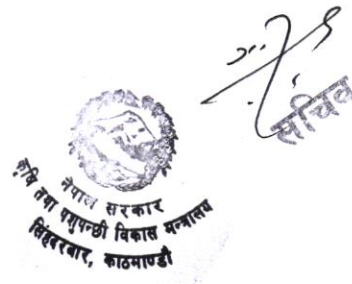 सचिव
नेपाल सरकार
कृषि तथा पशुपन्छी विकास मन्त्रालय
सिंहदरबार, काठमाण्डौ